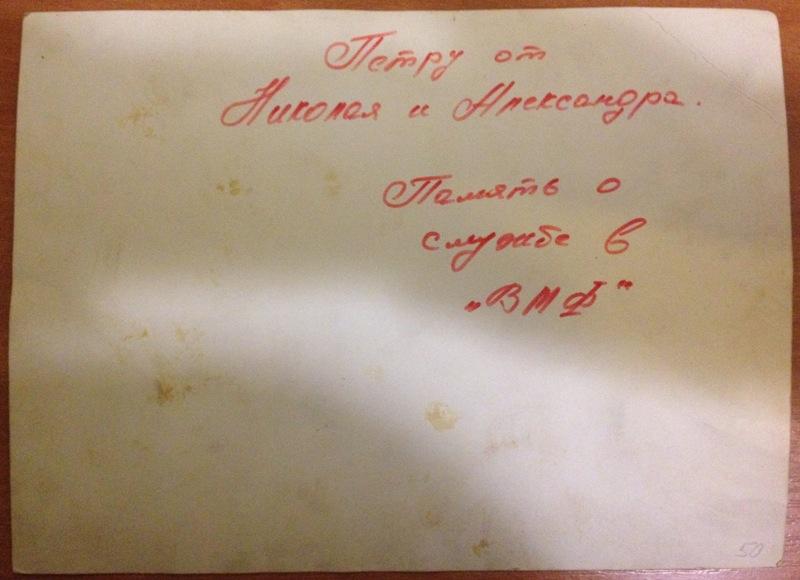 Петру от
Николая и Александра.
Память о
службе в
„ВМФ"
50